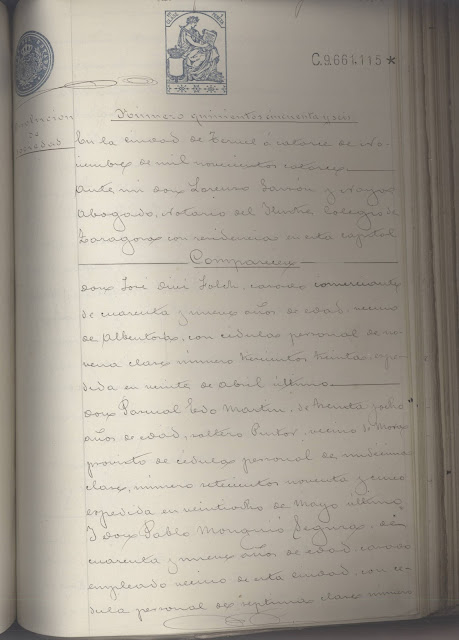 C.9.661.115 *
Disolución
de
sociedad
Número quinientos cincuenta y seis
En la ciudad de Teruel á catorce de No-
viembre de mil novecientos catorce
ante mi don Lorenzo y
Abogado, Notario del Ilustre Colegio de
Zaragoza con residencia en esta capital
Comparecen
Don José Diví Folch, casado comerciante
de cuarenta y nueve años de edad, vecino
de Albentosa, con cédula personal de no-
vena clase número trescientos treinta, expe-
dida en veinte de abril último
Don Pascual Edo Martin, de treinta y ocho
años de edad, soltero Pintor, vecino de Mora
provisto de cédula personal de undécima
clase, número setecientos noventa y cinco
expedida en veintiocho de Mayo último
Y don Pablo Monguió Segura, de
cuarenta y nueve años de edad, casado
empleado vecino de esta ciudad, con cé-
dula personal de septima clase número